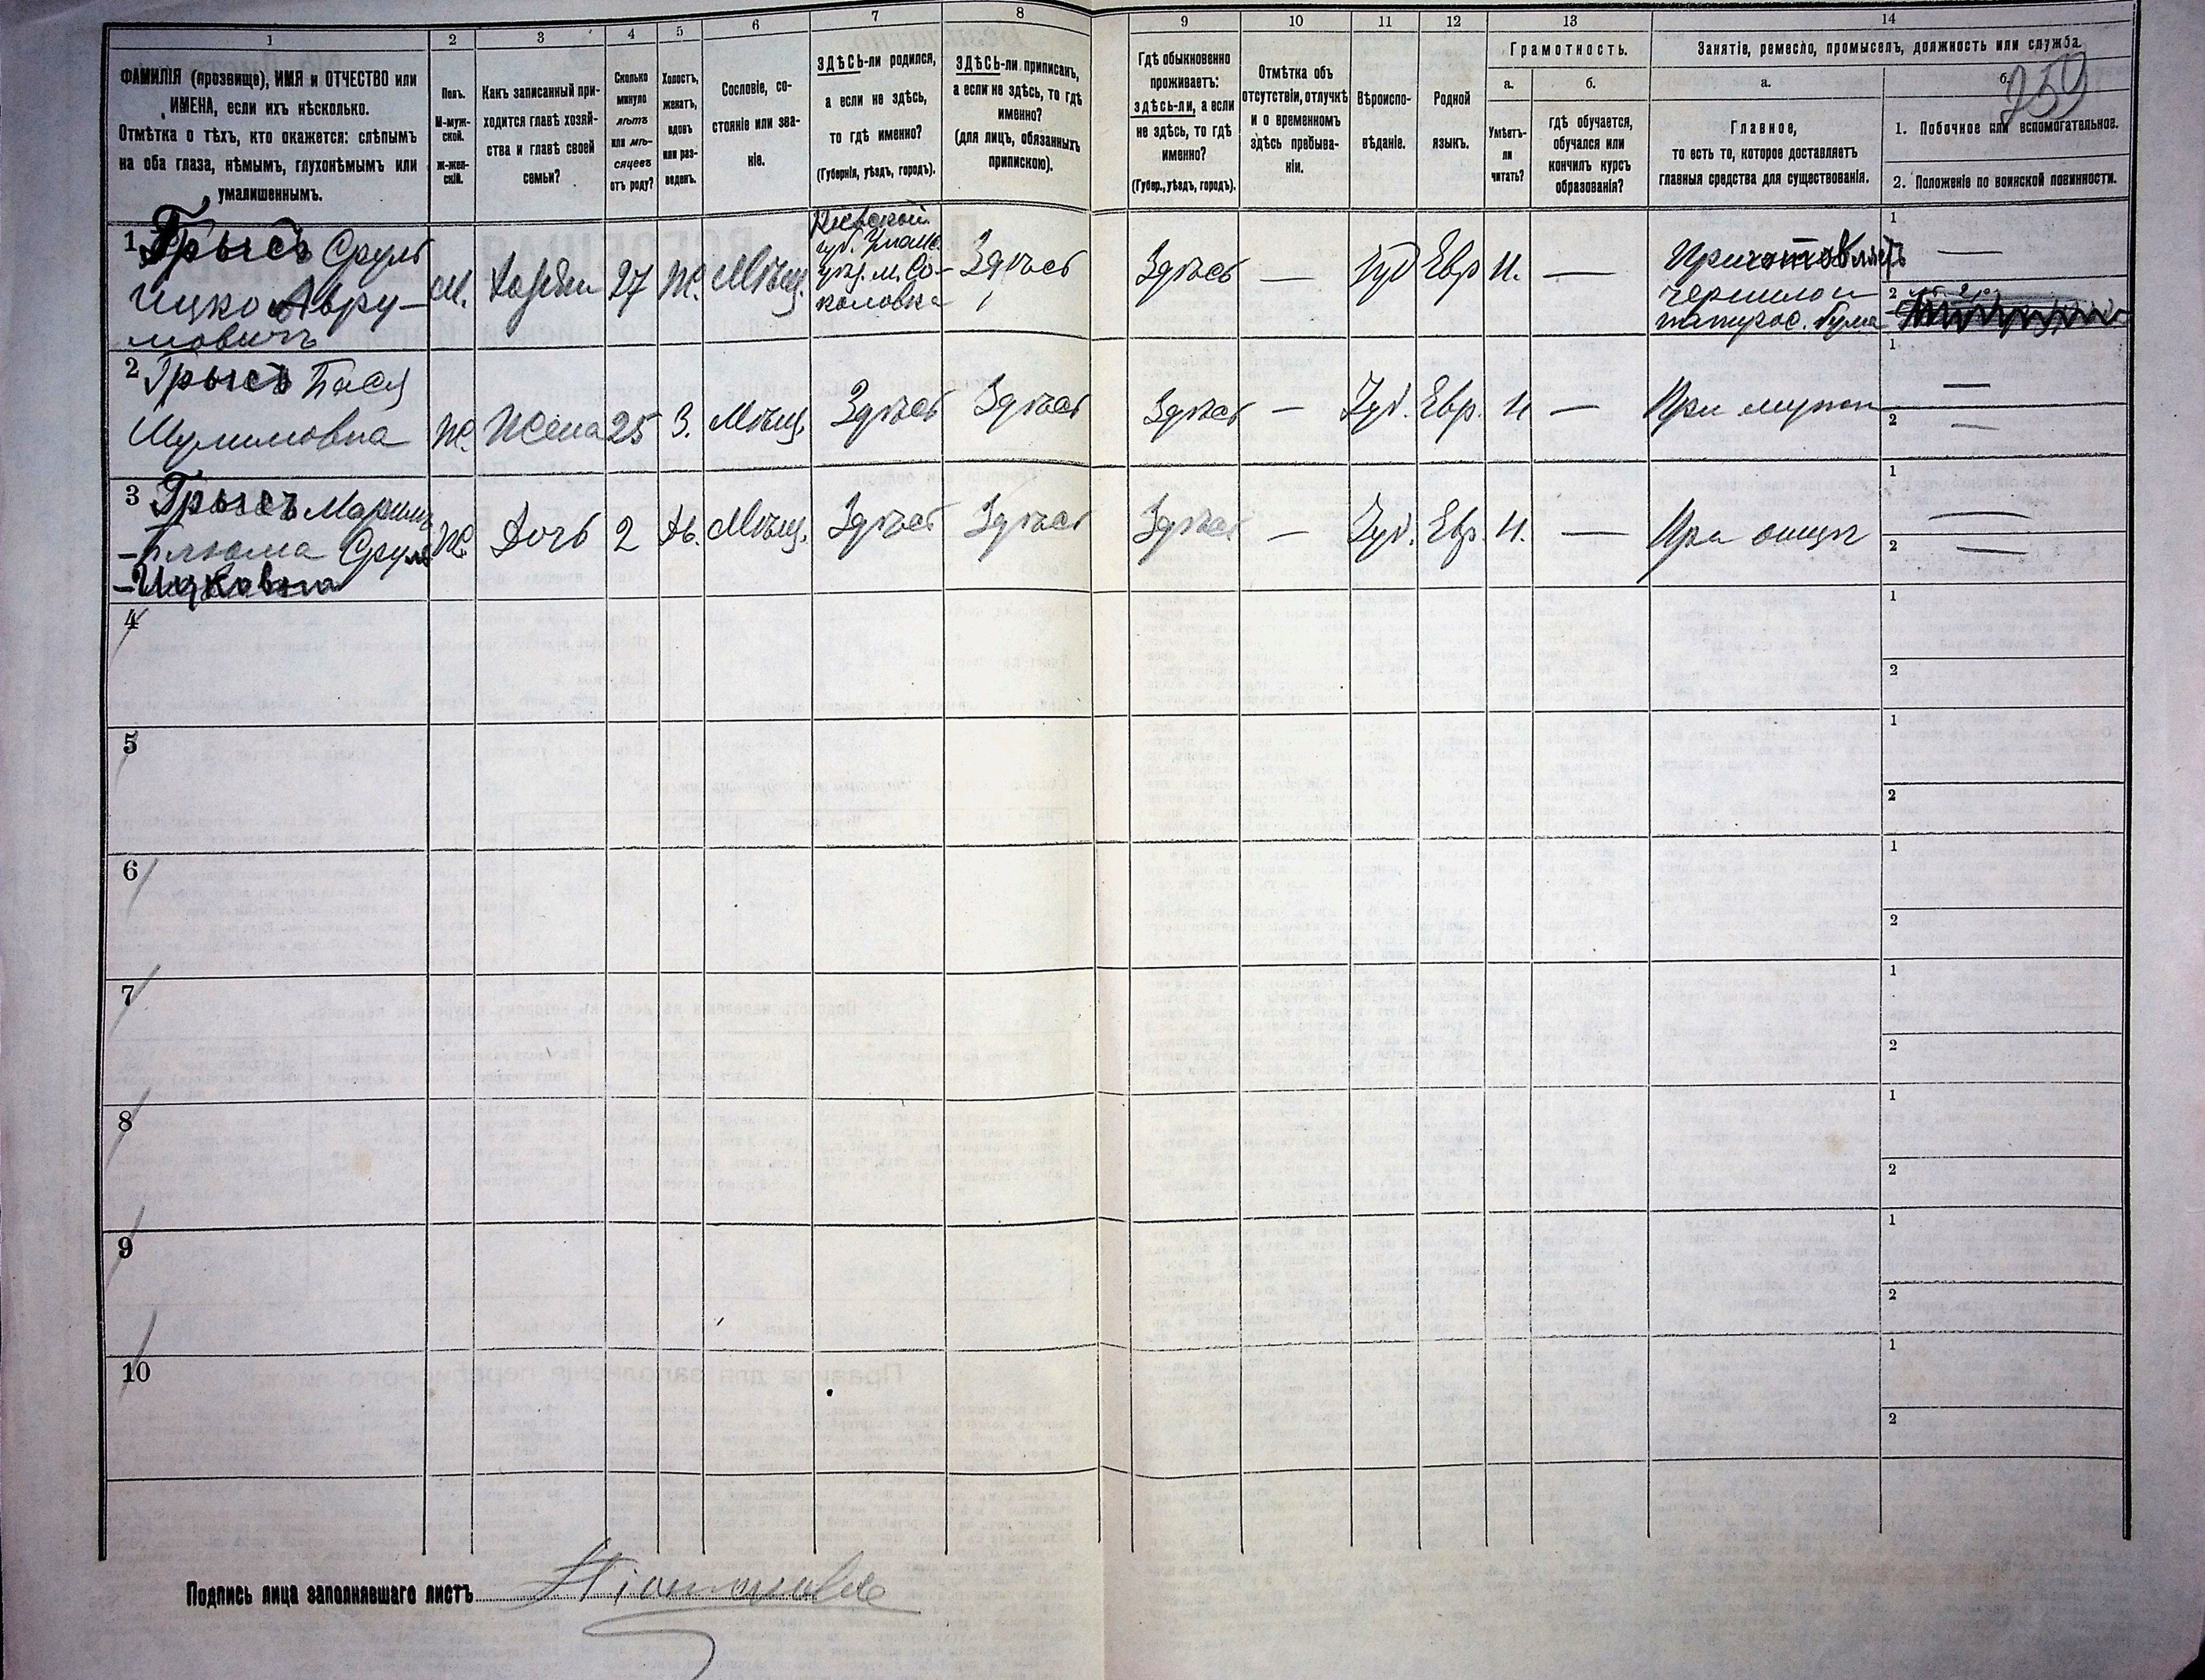 1 2 3 4 5 6 7 8 9 10 11 12 13 14
ФАМИЛІЯ (прозвище), ИМЯ и ОТЧЕСТВО или
ИМЕНА, если ихъ нѣсколько.
Отмѣтка о тѣхъ, кто окажется: слѣпымъ
на оба глаза, нѣмымъ, глухонѣмымъ или
умалишеннымъ.
Полъ.
М-муж-
ской.
Ж-жен-
скій.
Какъ записанный при-
ходится главѣ хозяй-
ства и главѣ своей
семьи?
Сколько
минуло
лѣтъ
или мѣ-
сяцевъ
отъ роду?
Холостъ,
женатъ,
вдовъ
или раз-
веденъ.
Сословіе, со-
стояніе или зва-
ніе.
ЗДѢСЬ-ли родился,
а если не здѣсь,
то гдѣ именно?
(Губернія, уѣздъ, городъ).
ЗДѢСЬ-ли приписан,
а если не здѣсь, то гдѣ
именно?
(для лицъ, обязанныхъ
припискою).
Гдѣ обыкновенно
проживаетъ:
здѣсь-ли, а если
не здѣсь, то гдѣ
именно?
(Губер., уѣздъ, городъ).
Отмѣтка объ
отсутствіи, отлучкѣ
и о временномъ
здѣсь пребыва-
ніи.
Вѣроиспо-
вѣданіе.
Родной
языкъ.
Грамотность.
а.
Умѣетъ-
ли
читать?
б.
гдѣ обучается,
обучался или
кончилъ курсъ
образованія?
Занятіе, ремесло, промыселъ, должность или служба.
а.
Главное,
то есть то, которое доставляетъ
главныя средства для существованія.
б.
1. Побочное или вспомогательное.
2. Положеніе по воинской повинности.
1 Грысь Сруль
Ицко Авру-
мовичъ
М.
27
Ж.
Мѣщ.
Кіевской
губ. Уманс.
уѣз. м. Со-
коловка
Здѣсь
Здѣсь
—
Іуд
Евр
И.
—
Приготовляетъ
чернило и
папирос. бума
1 —
2
2 Грысь Бася
Шулимовна
Ж.
Жена
25
З.
Мѣщ.
Здѣсь
Здѣсь
Здѣсь
—
Іуд.
Евр.
И
—
При мужѣ
1 —
2 —
3 Грысь Маріим
-Блюма Срул
-Ицковна
Ж.
Дочь
2
Дѣ.
Мѣщ.
Здѣсь
Здѣсь
Здѣсь
—
Іуд.
Евр.
Н.
—
При отцѣ
1 —
2 —
4
1
2
5
1
2
6
1
2
7
1
2
8
1
2
9
1
2
10
1
2
Подпись лица заполнявшаго листъ